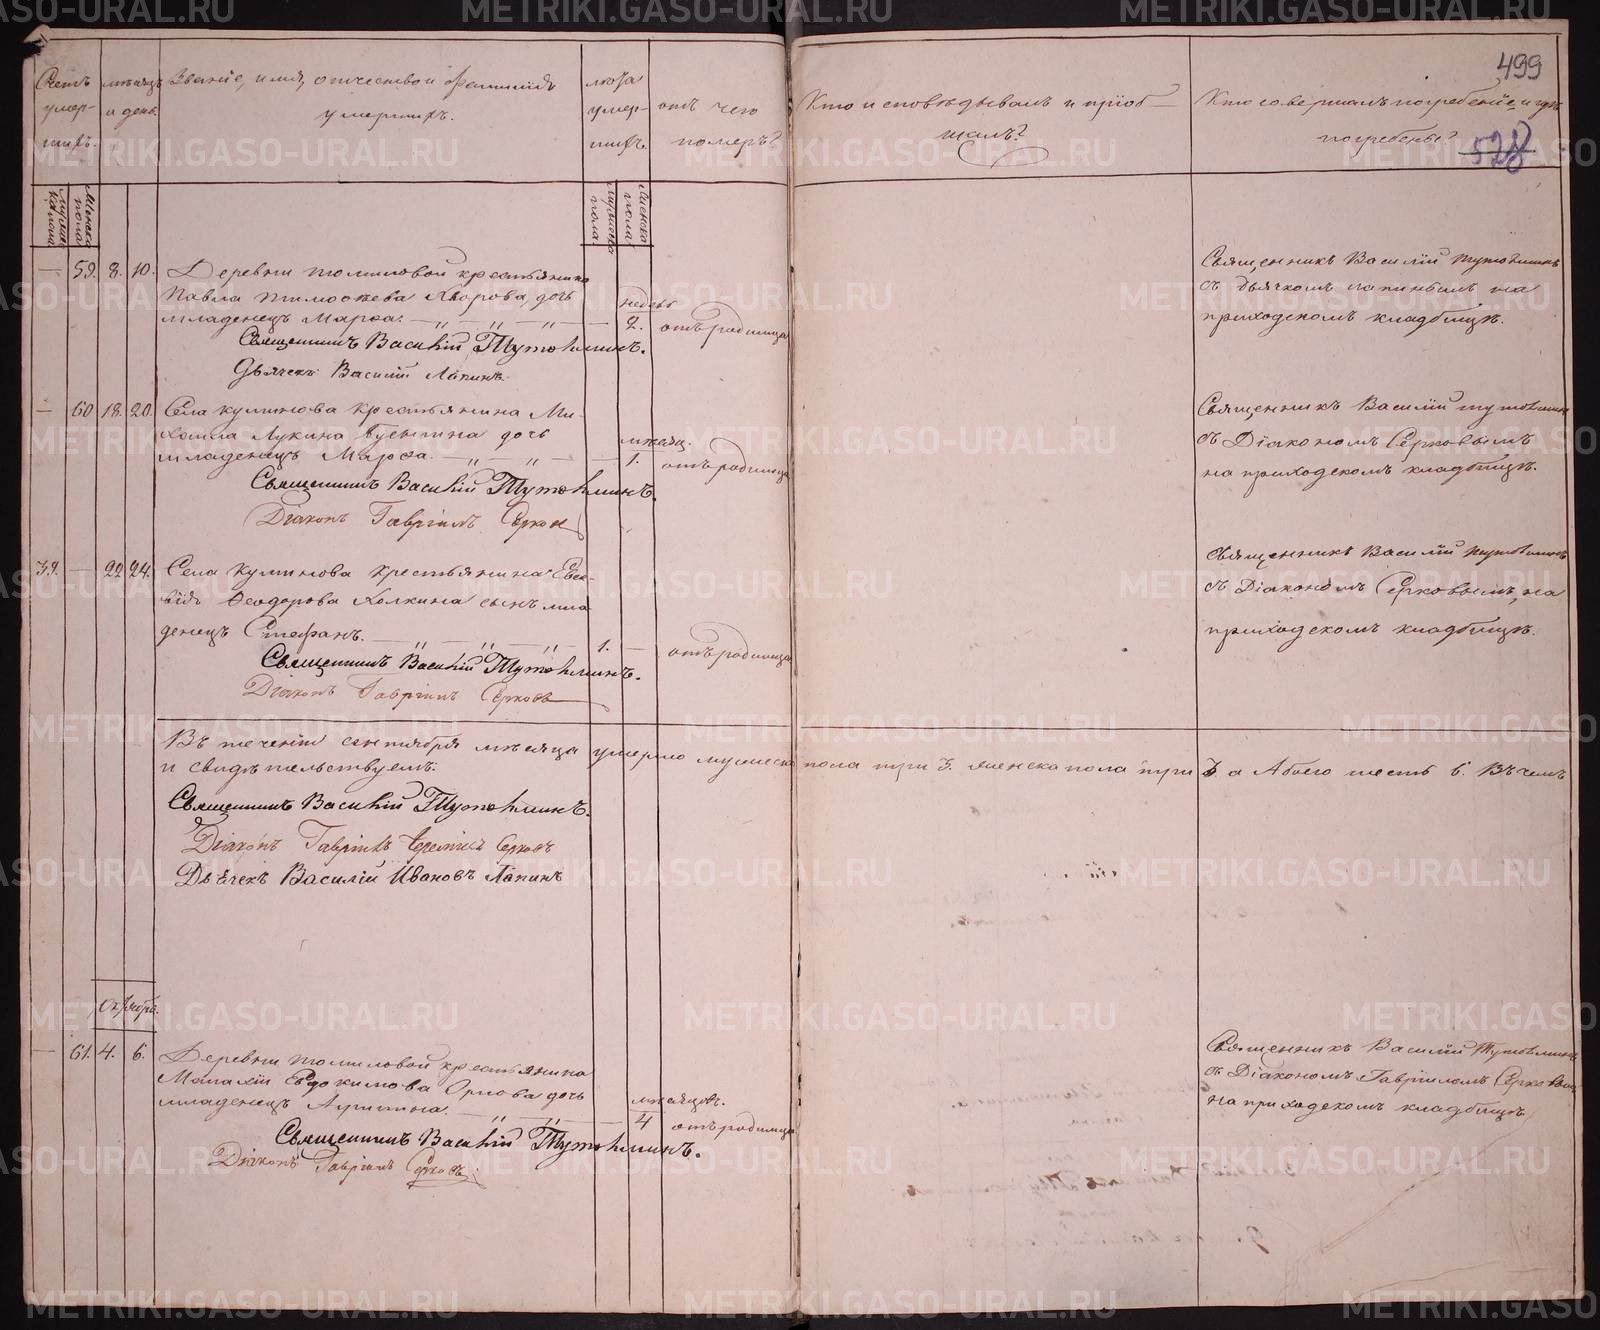 499
528
Счетъ умершихъ.
мѣсяцъ и день.
Званіе, имя, отчество и Фамилія умершихъ.
лѣта умершихъ.
отъ чего померъ?
Кто исповѣдывалъ и пріобщалъ?
Кто совершалъ погребеніе и гдѣ погребены?
Мужеска пола
Женска пола
Мужеска пола
Женска пола
— 59. 8. 10. Деревни Томиловой крестьянина
Павла Тимоѳеева дочь
младенецъ Марѳа. — „ — „ — „ —
недѣль
2. отъ родимца
Священникъ Василій Тутолминъ.
Дьячекъ Василій Лапинъ.
Священникъ Василій Тутолминъ
съ дьячкомъ Лапинымъ на
приходскомъ кладбищѣ.
— 60 18. 20. Села Куминова крестьянина Ми-
хаила Лукина дочь
младенецъ Марѳа. — „ — „ —
мѣсяц.
1. отъ родимца
Священникъ Василій Тутолминъ.
Діаконъ Гавріилъ Серков
Священникъ Василій Тутолмин
съ Діакономъ Серковымъ
на приходскомъ кладбищѣ.
39. — 22 24. Села Куминова крестьянина Евсе-
вія Ѳеодорова Колкина сынъ мла
денецъ Стефанъ. — „ — „ — „ — 1. — отъ родимца
Священникъ Василій Тутолминъ.
Діаконъ Гавріилъ Серковъ
Священникъ Василій Тутолминъ
съ Діакономъ Серковымъ, на
приходскомъ кладбищѣ.
Въ теченіи сентября мѣсяца умерло мужеска пола три 3. женска пола три 3 а обоего шесть 6. Въ чемъ
и свидѣтельствуемъ.
Священникъ Василій Тутолминъ.
Діаконъ Гавріилъ Серковъ
Дьячекъ Василій Ивановъ Лапинъ
Октябрь.
— 61. 4. 6. Деревни Томиловой крестьянина
Малахіи Евдокимова Орлова дочь
младенецъ — „ — „ —
мѣсяцовъ.
4 отъ родимца
Священникъ Василій Тутолминъ.
Діаконъ Гавріилъ Серковъ.
Священникъ Василій Тутолминъ
съ Діакономъ Гавріиломъ Серковым
на приходскомъ кладбищѣ
METRIKI.GASO-URAL.RU